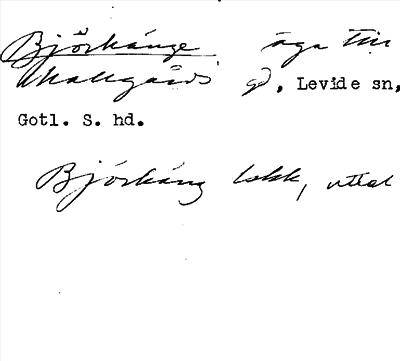 Björkänge äga till
Mallgårds gd, Levide sn,
Gotl. S. hd.
Björkäng lokk, uttal